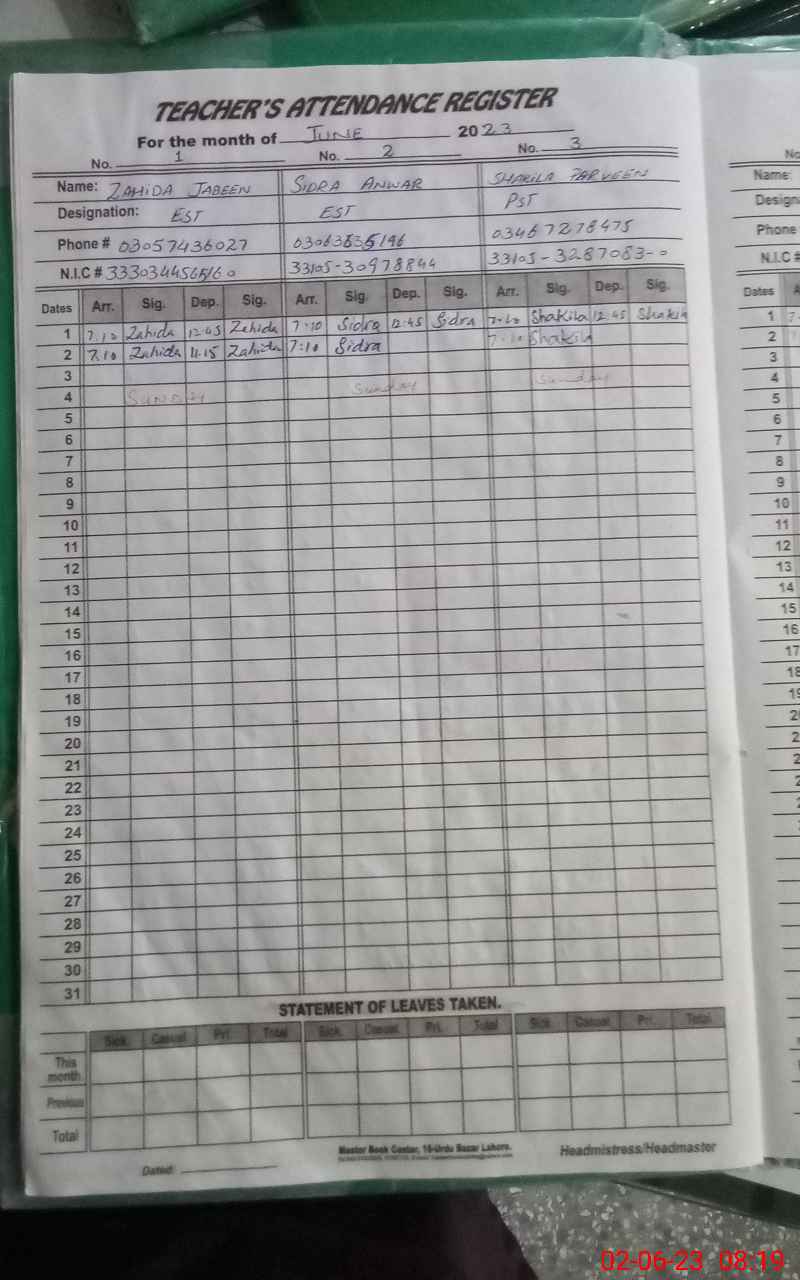 TEACHER'S ATTENDANCE REGISTER
For the month of JUNE 2023
No. 1 No. 2 No. 3
Name: ZAHIDA JABEEN SIDRA ANWAR SHAKILA PARVEEN
Designation: EST EST PST
Phone # 03057436027 03063835196 03467278475
N.I.C # 33105-30978844 33105-3287083-0
Dates Arr. Sig. Dep. Sig. Arr. Sig. Dep. Sig. Arr. Sig. Dep. Sig.
1 7.10 Zahida 12:45 Zahida 7:10 Sidra 12:45 Sidra 7.10 Shakila 12:45 Shakila
2 7.10 Zahida 11.15 Zahida 7:10 Sidra 7:10 Shakila
3
4 Sunday Sunday Sunday
5
6
7
8
9
10
11
12
13
14
15
16
17
18
19
20
21
22
23
24
25
26
27
28
29
30
31
STATEMENT OF LEAVES TAKEN.
Sick. Casual Pri. Total Sick. Casual Pri. Total Sick. Casual Pri. Total
This month
Previous
Total
Master Book Center, 16-Urdu Bazar Lahore.
Dated: Headmistress/Headmaster
No
Name:
Design
Phone
N.I.C #
Dates A
1 7
2
3
4
5
6
7
8
9
10
11
12
13
14
15
16
17
18
02-06-23 08:19